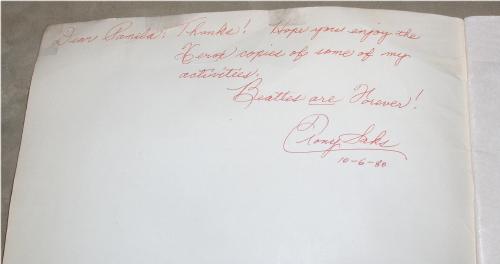 Dear Pamila: Thanks! Hope you enjoy the
Xerox copies of some of my
activities.
Beatles are Forever!
Rony Saks
10-6-80